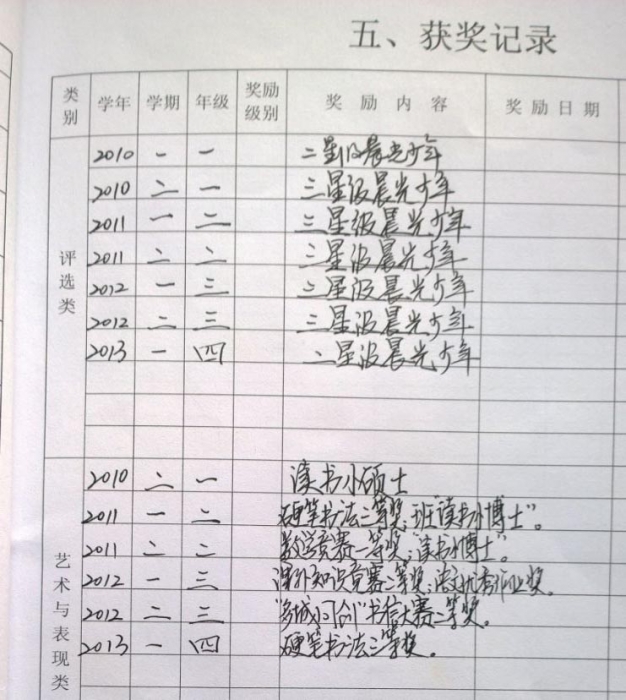 五、获奖记录
类别 学年 学期 年级 奖励级别 奖励内容 奖励日期
评选类
2010 一 一 二星级晨光少年
2010 二 一 三星级晨光少年
2011 一 二 三星级晨光少年
2011 二 二 三星级晨光少年
2012 一 三 三星级晨光少年
2012 二 三 三星级晨光少年
2013 一 四 二星级晨光少年
艺术与表现类
2010 二 一 读书小硕士
2011 一 二 硬笔书法二等奖；班"读书小博士"。
2011 二 二 竞赛一等奖；"读书小博士"。
2012 一 三 课外知识竞赛二等奖；语文优秀作业奖。
2012 二 三 书信大赛二等奖。
2013 一 四 硬笔书法三等奖。